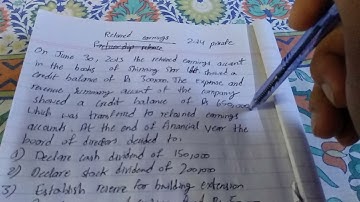 Retained earnings
2:24 pm
On June 30, 2013 the retained earnings account
in the books of Shining Star Ltd showed a
credit balance of Rs 300,000. The expense and
revenue summary account of the company
showed a credit balance of Rs 650,000
which was transferred to retained earnings
accounts. At the end of financial year the
board of directors decided to:
1) Declare cash dividend of 150,000
2) Declare stock dividend of 200,000
3) Establish reserve for building extension